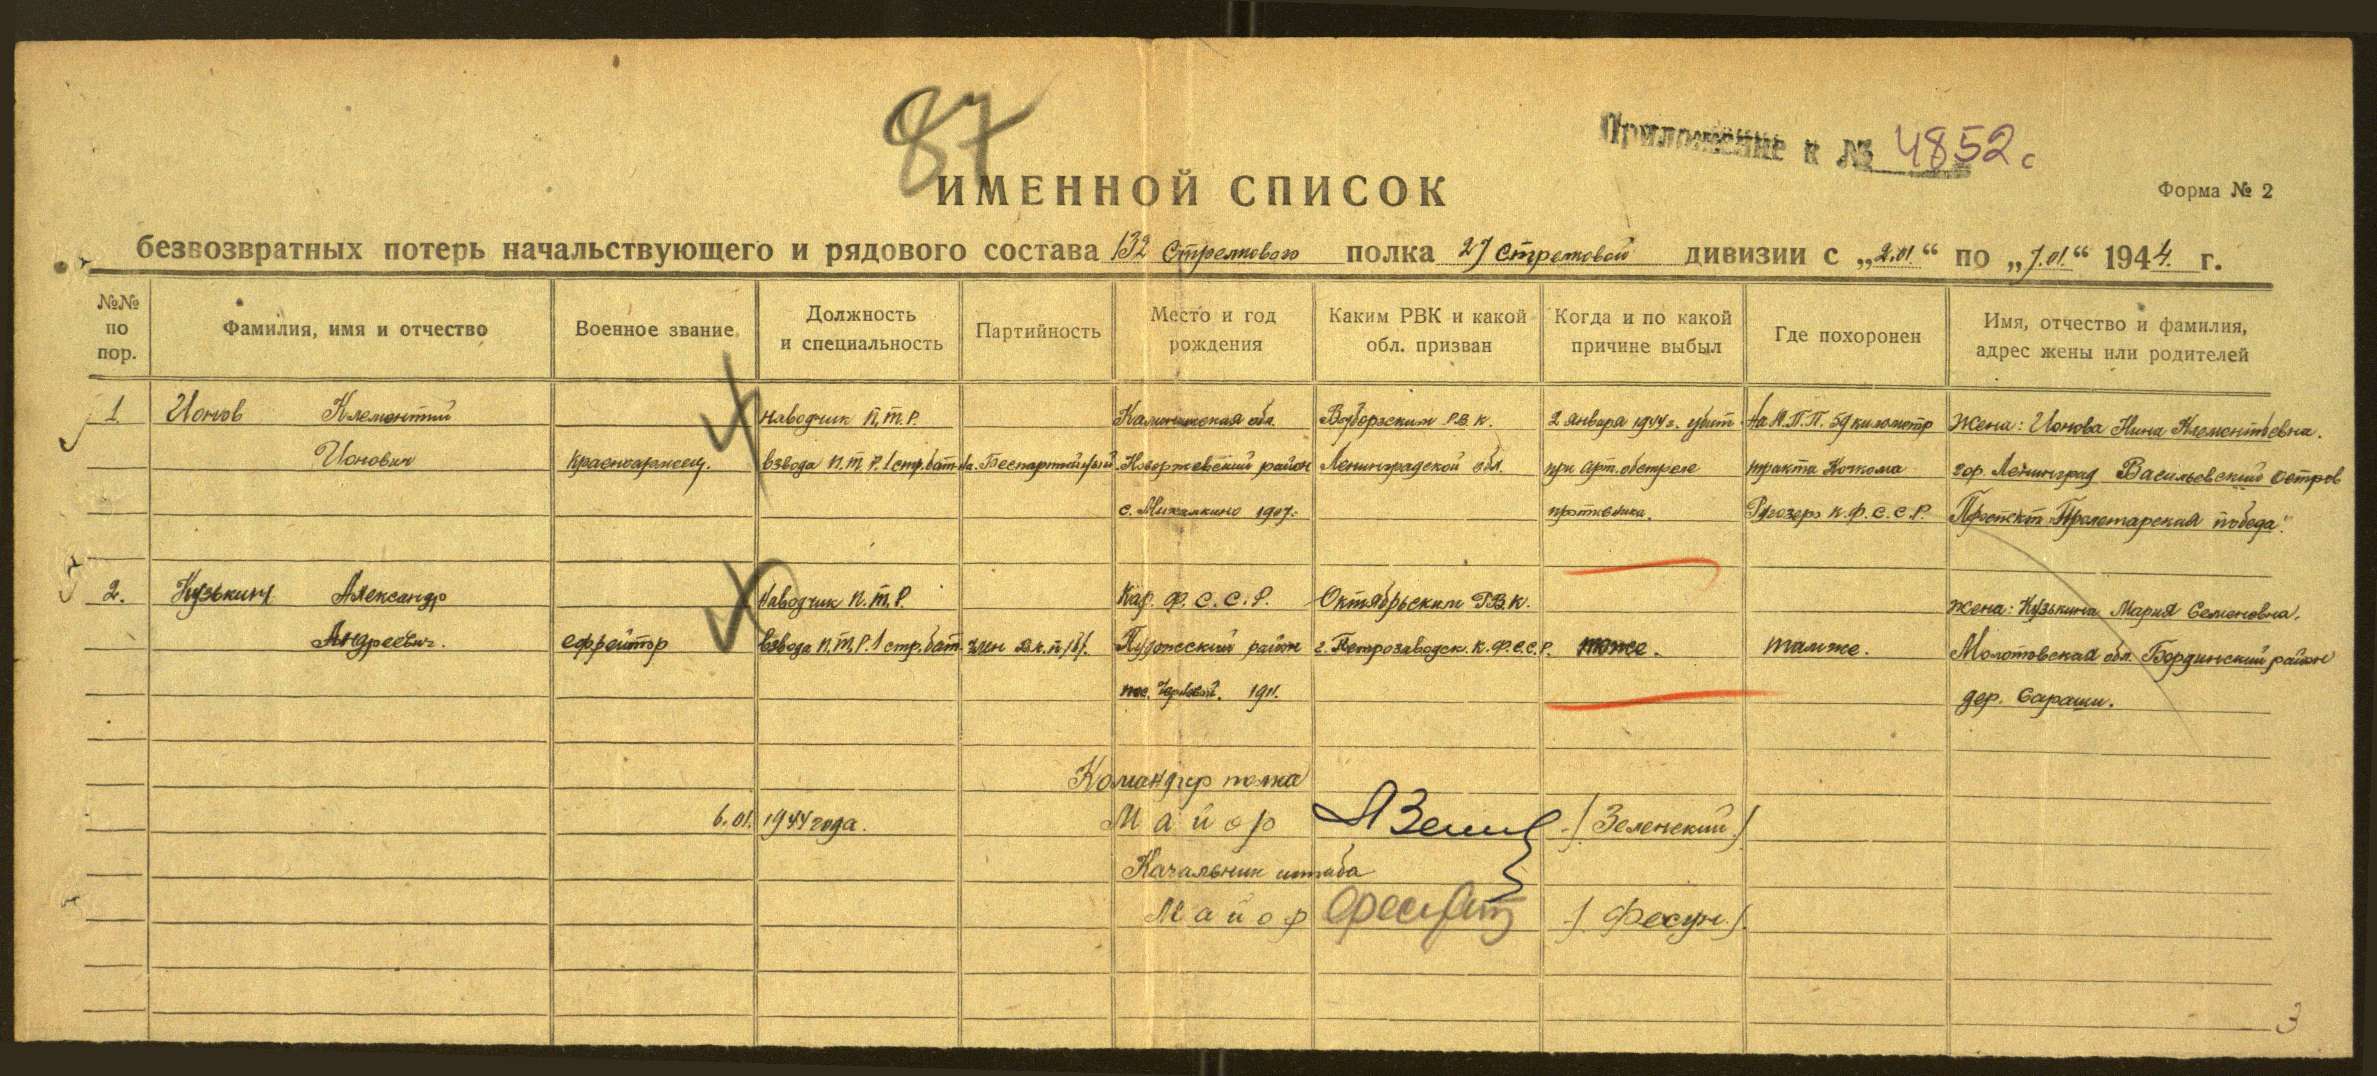 87
Приложение к № 4852с
ИМЕННОЙ СПИСОК
Форма № 2
безвозвратных потерь начальствующего и рядового состава 132 Стрелкового полка 27 Стрелковой дивизии с „2.01.“ по „7.01.“ 1944. г.
№№ по пор.
Фамилия, имя и отчество
Военное звание
Должность и специальность
Партийность
Место и год рождения
Каким РВК и какой обл. призван
Когда и по какой причине выбыл
Где похоронен
Имя, отчество и фамилия, адрес жены или родителей
1. Ионов Клементий наводчик П.Т.Р. Калининская обл. Выборгским Р.В.К. 2 января 1944г. убит На М.П.П. 59 километр Жена: Ионова Нина Клементьевна.
Ионович Красноармеец. взвода П.Т.Р. 1 стр.бат-на. Беспартийный Новоржевский район Ленинградской обл. при арт.обстреле тракта Кочкома гор. Ленинград Васильевский остров
с. Михалкино 1907г. противника. Ругозеро К.Ф.С.С.Р. Проспект "Пролетарская победа".
2. Кузькин Александр Наводчик П.Т.Р. Кар. Ф.С.С.Р. Октябрьским Р.В.К. жена: Кузькина Мария Семеновна.
Андреевич. ефрейтор взвода П.Т.Р. 1 стр.бат. член В.К.П.(б). Пудожский район г. Петрозаводск. К.Ф.С.С.Р. тоже. там же. Молотовская обл. Бординский район
пос. 1911. дер. Сараши.
Командир полка
6.01. 1944 года. Майор /Зеленский/
Начальник штаба
Майор /Фесун./
3